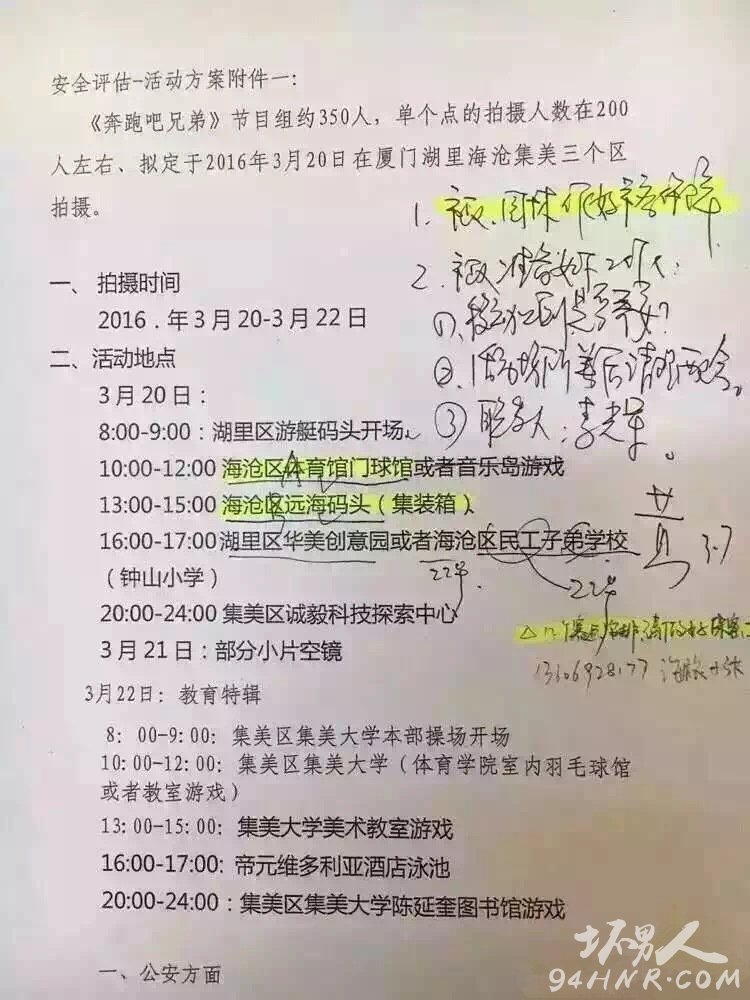 安全评估-活动方案附件一:
《奔跑吧兄弟》节目组约350人，单个点的拍摄人数在200
人左右、拟定于2016年3月20日在厦门湖里海沧集美三个区
拍摄。
一、 拍摄时间
2016．年3月20-3月22日
二、活动地点
3月20日：
8:00-9:00：湖里区游艇码头开场
10:00-12:00 海沧区体育馆门球馆或者音乐岛游戏
13:00-15:00 海沧区远海码头（集装箱）
16:00-17:00 湖里区华美创意园或者海沧区民工子弟学校
22号
22号
3.7
（钟山小学）
20:00-24:00 集美区诚毅科技探索中心
3月21日：部分小片空镜
13606928177
3月22日：教育特辑
8：00-9:00：集美区集美大学本部操场开场
10:00-12:00：集美区集美大学（体育学院室内羽毛球馆
或者教室游戏）
13:00-15:00：集美大学美术教室游戏
16:00-17:00: 帝元维多利亚酒店泳池
20:00-24:00：集美区集美大学陈延奎图书馆游戏
一、公安方面
坏男人
94HNR.COM